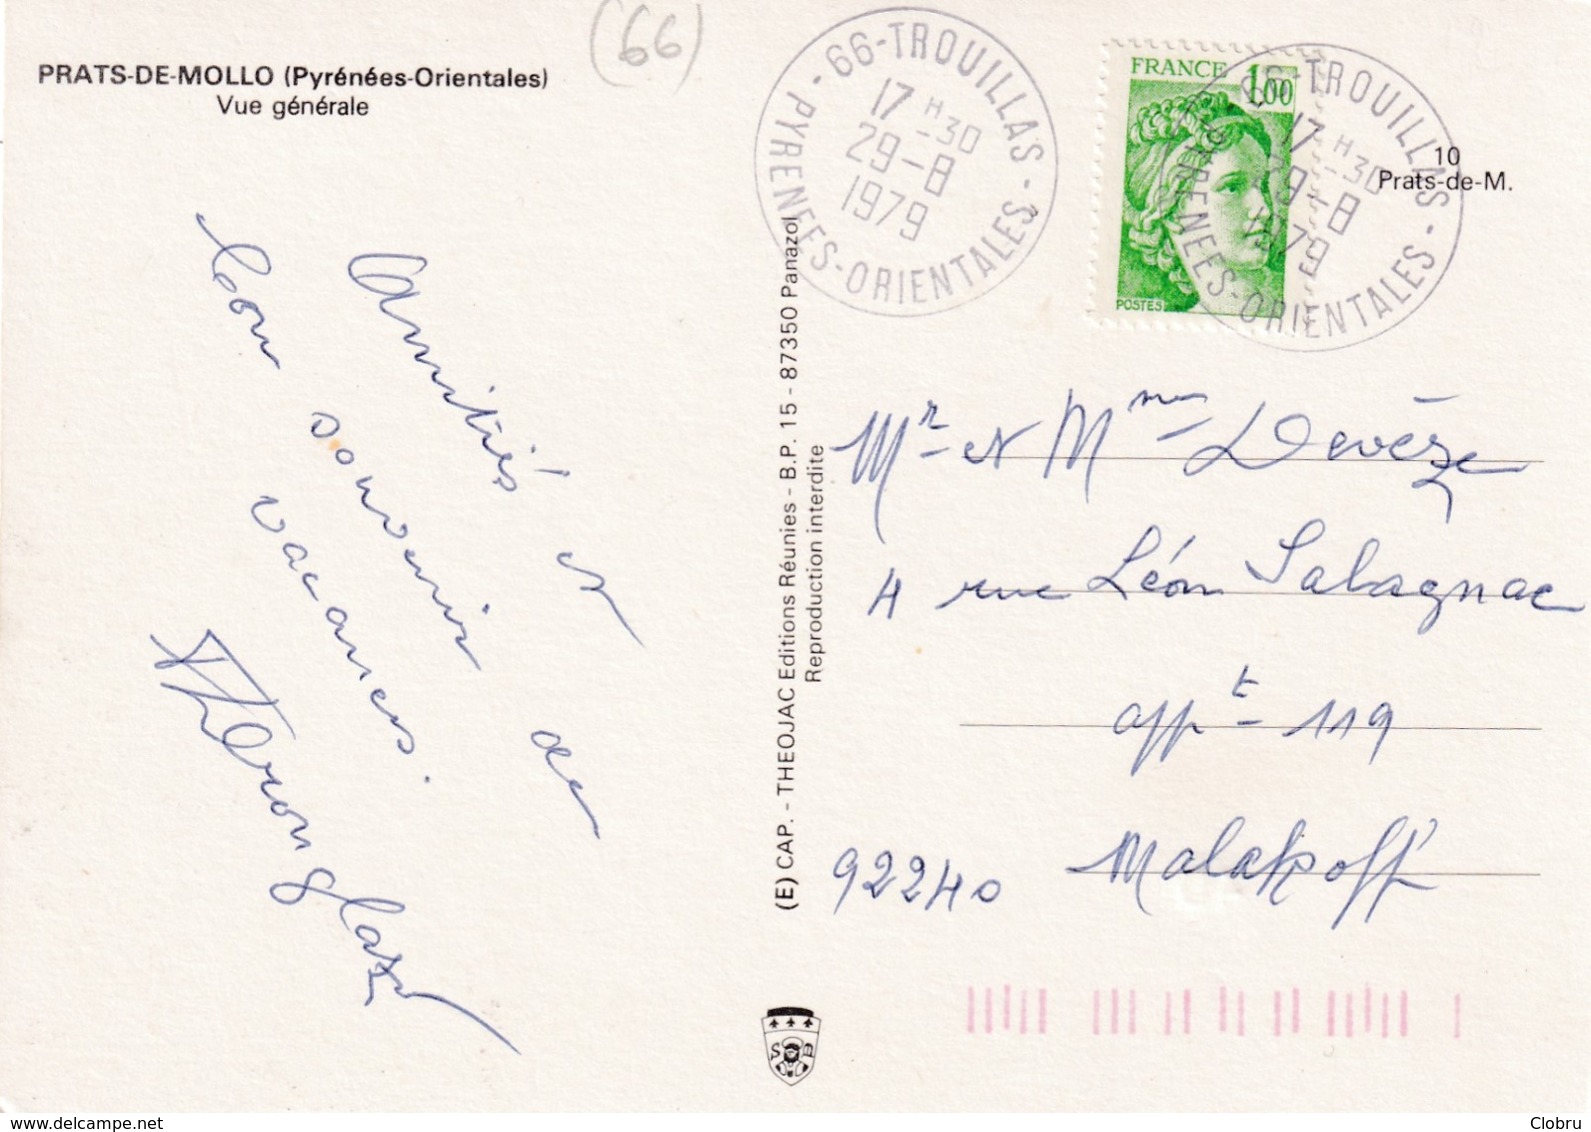 (66)
PRATS-DE-MOLLO (Pyrénées-Orientales)
Vue générale
66-TROUILLAS
17 H -30
29-8
1979
- PYRENEES-ORIENTALES -
FRANCE 1,00
POSTES
66-TROUILLAS
17 H -30
29-8
1979
PYRENEES-ORIENTALES -
10
Prats-de-M.
Amitiés et
bon souvenir de
vacances.
(E) CAP. - THEOJAC Editions Réunies - B.P. 15 - 87350 Panazol
Reproduction interdite
Mr et Mme Devèze
4 rue Léon Salagnac
appt 119
92240 Malakoff
S D
© Clobru